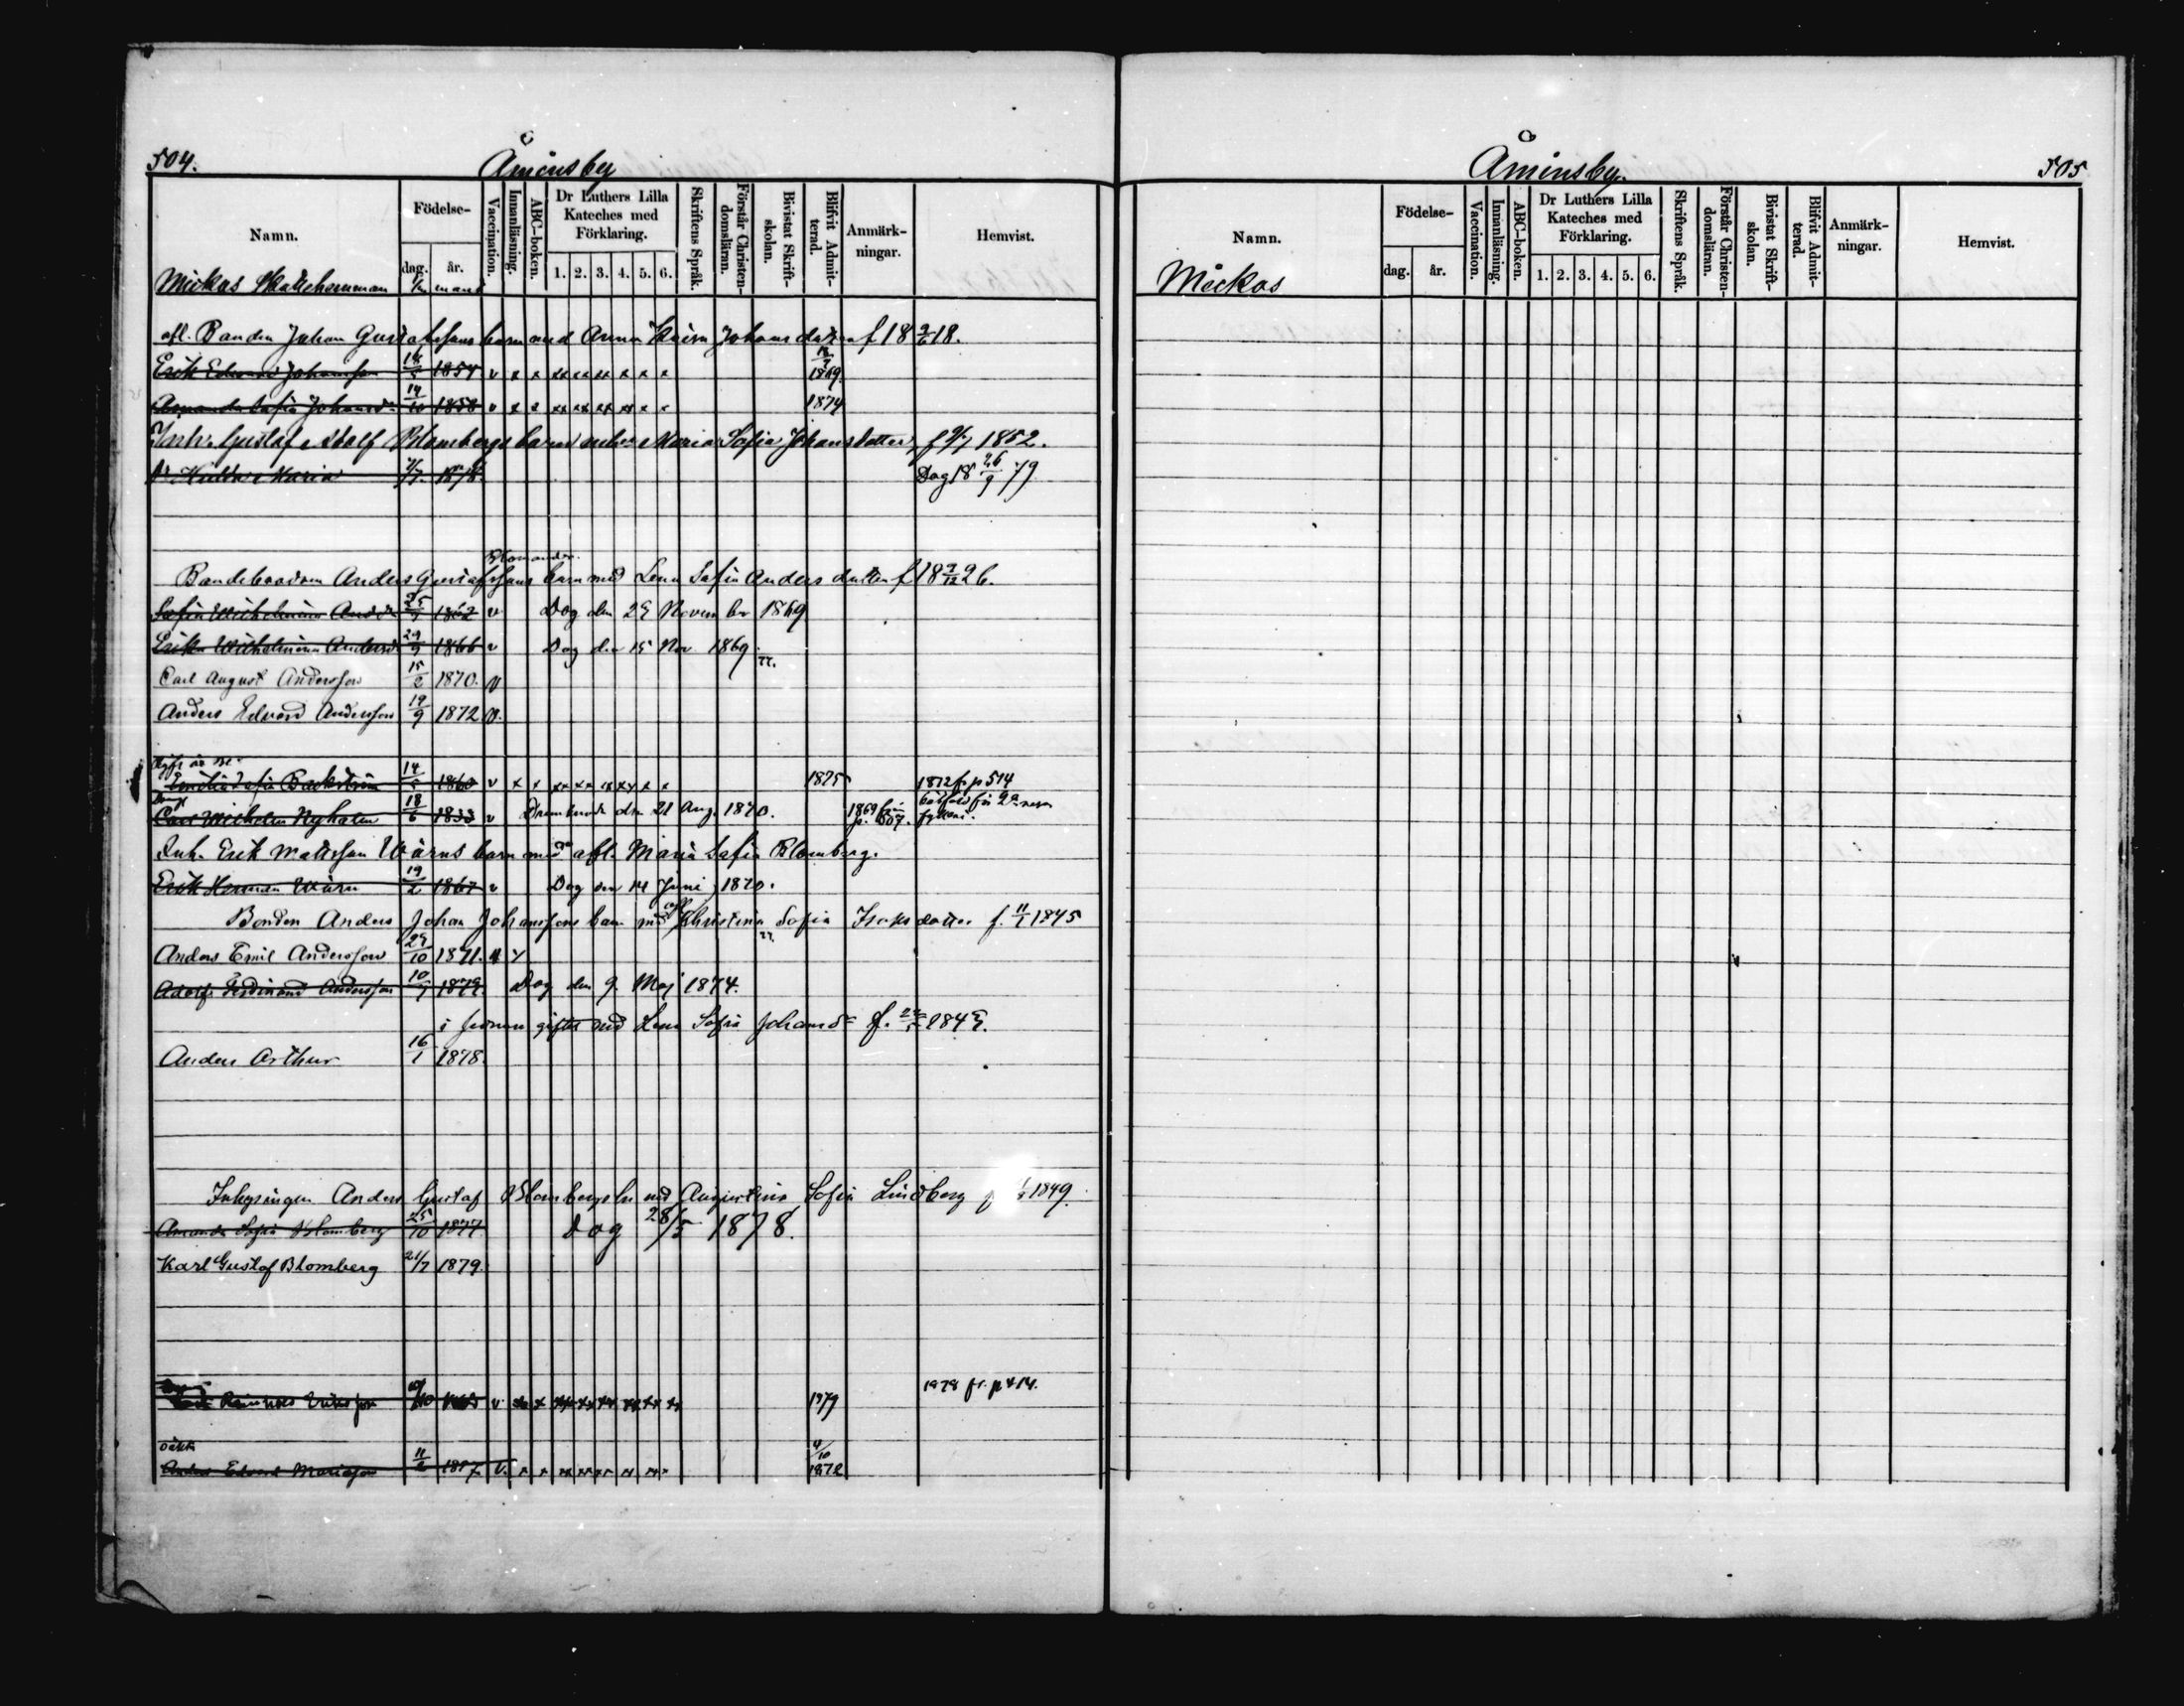 504.
Åminsby
Namn.
Födelse-
dag.
år.
Vaccination.
Innanläsning.
ABC-boken.
Dr Luthers Lilla
Kateches med
Förklaring.
1. 2. 3. 4. 5. 6.
Skriftens Språk.
Förstår Christen-
domsläran.
Bivistat Skrift-
skolan.
Blifvit Admit-
terad.
Anmärk-
ningar.
Hemvist.
Mickas Skattehemman
afl. Banden Johan Gustafssons barn med Anna Kaisa Johansdotter f 18 18.
Erik Edvard Johansson 14/5 1854 v x x xx xx xx x x x 1869
Amanda Sofia Johansd. 14/10 1858 v x x xx xx xx xx x x 1874
Inh. Gustaf Adolf Blombergs barn m Maria Sofia Johansdotter, f 1852.
Maria 1878 Dog 18 26/9 79
Anders Gustafssons barn med Lena Sofia Andersdotter f 18 9/12 26.
Sofia Wilhelmina Andd. 25/ 1862 v Dog den 29 November 1869
Erika Wilhelmina Andersd. 29/9 1866 v Dog den 15 Nov 1869
Carl August Andersson 15/2 1870. v
Anders Edvard Andersson 19/9 1872 v.
Emilia Sofia Backström 14/ 1860 v x x xx xx xx xx x x 1875 1872 fr. p 514
Carl Wilhelm Nyholm 18/6 1853 v den 21 Aug. 1870. 1869 från p. 507.
Inh. Erik Mattsson Wärns barn med afl. Maria Sofia Blomberg.
Erik Herman Wärn 19/2 1867 v Dog den 14 Juni 1870.
Bonden Anders Johan Johanssons barn med afl Christina Sofia Isaksdotter f. 11/1 1845
Anders Emil Andersson 29/10 1871. v
Adolf Ferdinand Andersson 10/ 1872. Dog den 9. Maj 1874.
i giftet med Lena Sofia Johansdr f. 1845.
Anders Arthur 16/1 1878.
Inhysingen Anders Gustaf Blombergs med Augustina Sofia Lindberg f 1849.
Amanda Sofia Blomberg 25/10 1877. Dog 28/5 1878.
Karl Gustaf Blomberg 21/7 1879.
Eriksson v. 1879 1878 fr. p 414.
oäkta
Anders Edvard Mariason 11/2 1857. v. x x xx xx xx 4/10 1872
Åminsby.
505
Namn.
Födelse-
dag.
år.
Vaccination.
Innanläsning.
ABC-boken.
Dr Luthers Lilla
Kateches med
Förklaring.
1. 2. 3. 4. 5. 6.
Skriftens Språk.
Förstår Christen-
domsläran.
Bivistat Skrift-
skolan.
Blifvit Admit-
terad.
Anmärk-
ningar.
Hemvist.
Mickas